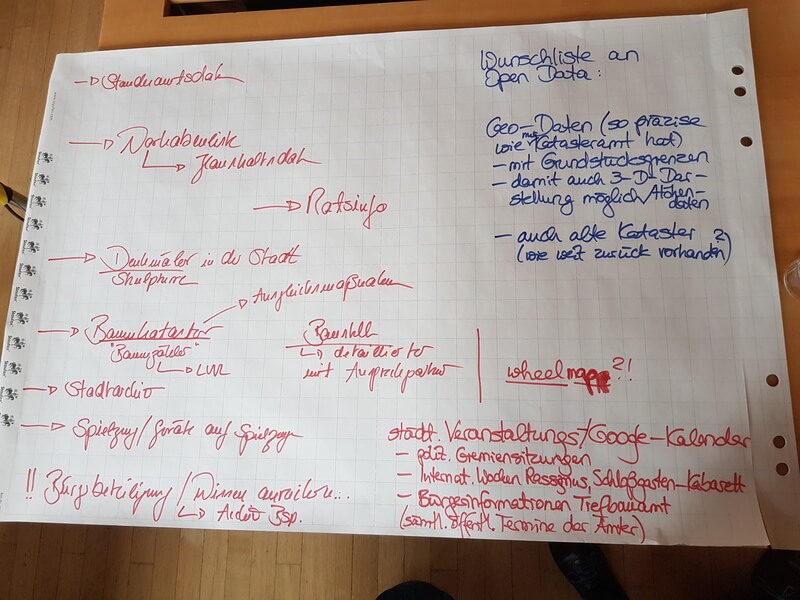 → Standesamtsdaten
→ Vorhabenliste
↳ Haushaltsdaten
→ Ratsinfo
→ Denkmäler in der Stadt
Skulpturen
→ Baumkataster → Ausgleichsmaßnahmen
"Baumzähler"
↳ LWL
Baustell
↳ detaillierter
mit Ansprechpartner
→ Stadtarchiv
→ Spielzeug/Geräte auf Spielzeug
!! Bürgerbeteiligung / Wissen anreichern...
↳ Archiv Bsp.
Wunschliste an
Open Data:
Geo-Daten (so präzise
wie nur Katasteramt hat)
- mit Grundstücksgrenzen
- damit auch 3-D-Dar-
stellung möglich/Höhen-
daten
- auch alte Kataster ?
(wie weit zurück vorhanden)
wheelmap ?!
städt. Veranstaltungs-/Google-Kalender
- polit. Gremiensitzungen
- Internat. Wochen Rassismus, Schloßgarten-Kabarett
- Bürgerinformationen Tiefbauamt
(sämtl. öffentl. Termine der Ämter)